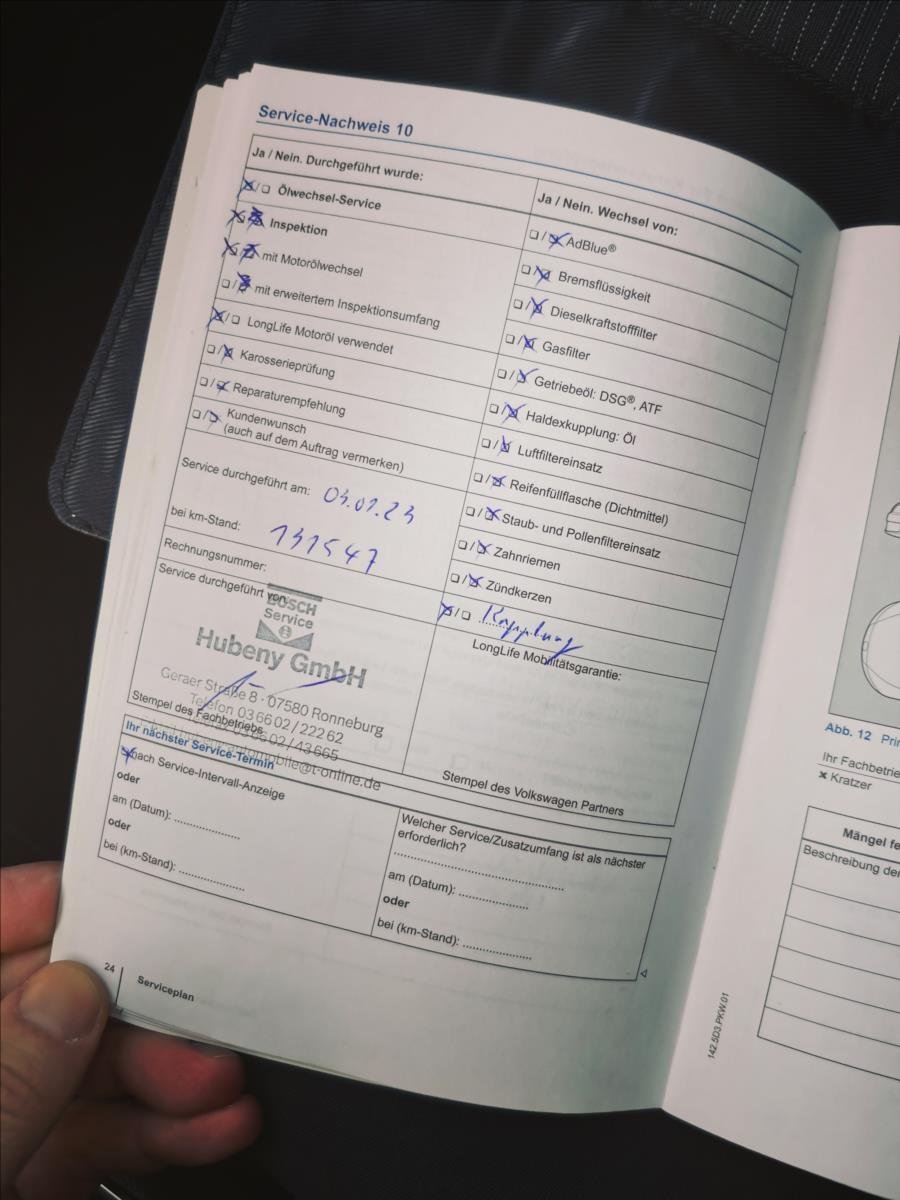 Service-Nachweis 10
Ja / Nein. Durchgeführt wurde:
Ölwechsel-Service
Inspektion
mit Motorölwechsel
mit erweitertem Inspektionsumfang
LongLife Motoröl verwendet
Karosserieprüfung
Reparaturempfehlung
Kundenwunsch
(auch auf dem Auftrag vermerken)
Service durchgeführt am:
bei km-Stand: 131547
Rechnungsnummer:
Service durchgeführt von:
BOSCH
Service
Hubeny GmbH
Geraer Straße 8 · 07580 Ronneburg
Telefon 03 66 02 / 222 62
Stempel des Fachbetriebs
Ja / Nein. Wechsel von:
AdBlue®
Bremsflüssigkeit
Dieselkraftstofffilter
Gasfilter
Getriebeöl: DSG®, ATF
Haldexkupplung: Öl
Luftfiltereinsatz
Reifenfüllflasche (Dichtmittel)
Staub- und Pollenfiltereinsatz
Zahnriemen
Zündkerzen
LongLife Mobilitätsgarantie:
Stempel des Volkswagen Partners
Ihr nächster Service-Termin
nach Service-Intervall-Anzeige
oder
am (Datum): ....................
oder
bei (km-Stand): ....................
Welcher Service/Zusatzumfang ist als nächster
erforderlich?
am (Datum): ....................
oder
bei (km-Stand): ....................
24
Serviceplan
142.5D3.PKW.01
Abb. 12
Ihr
Kratzer
Mängel
Beschreibung